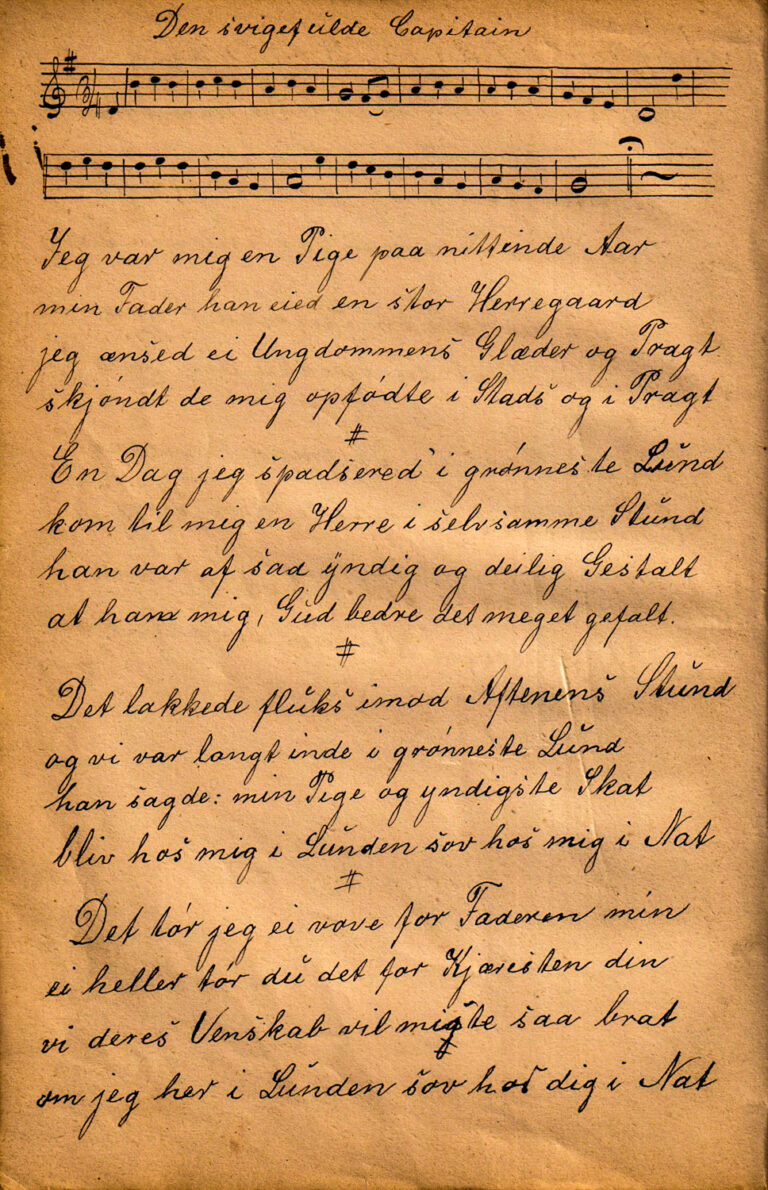 Den svigefulde Capitain
Jeg var mig en Pige paa nittende Aar
min Fader han eied en stor Herregaard
jeg ænsed ei Ungdommens Glæder og Pragt
skjöndt de mig opfødte i Stads og i Pragt
#
En Dag jeg spadsered' i grønneste Lund
kom til mig en Herre i selvsamme Stund
han var af saa yndig og deilig Gestalt
at han mig, Gud bedre det meget gefalt.
#
Det lakkede fluks imod Aftenens Stund
og vi var langt inde i grønneste Lund
han sagde: min Pige og yndigste Skat
bliv hos mig i Lunden sov hos mig i Nat
#
Det tør jeg ei vove for Faderen min
ei heller tør du det for Kjæresten din
vi deres Venskab vil miste saa brat
#
om jeg her i Lunden sov hos dig i Nat